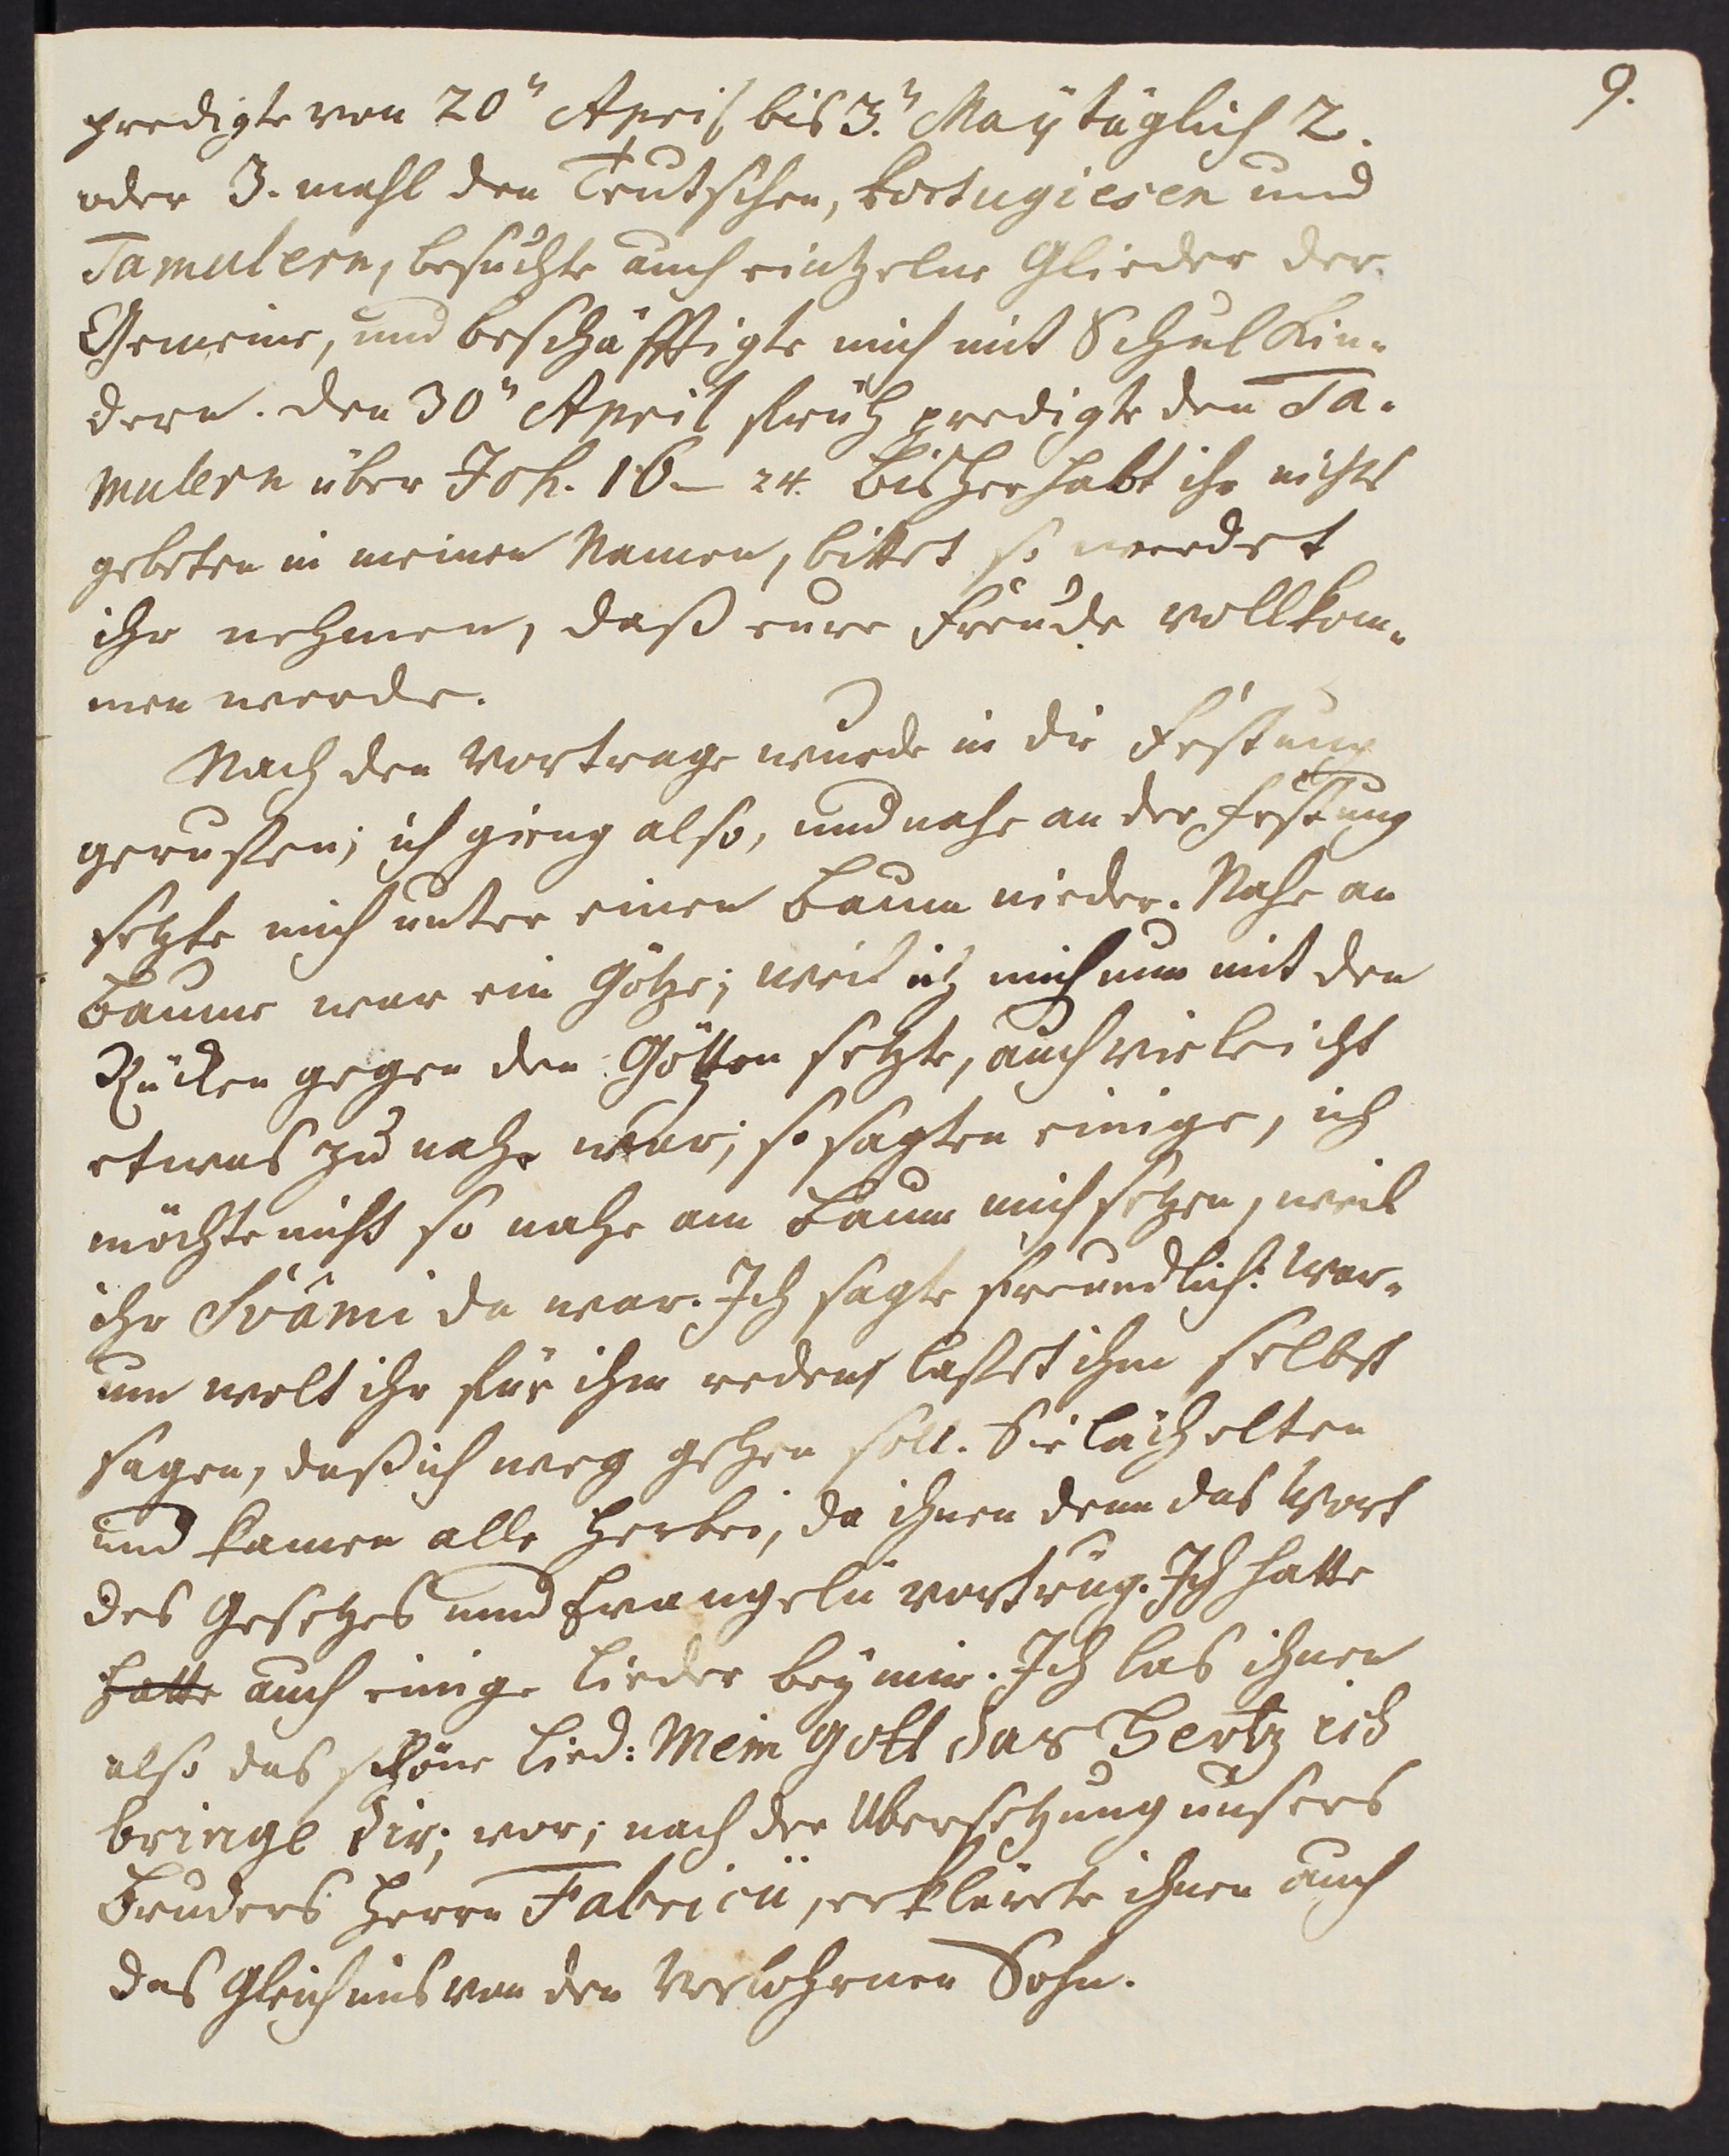 9.
predigte von 20ⁿ April bis 3.ⁿ Maÿ täglich 2.
oder 3. mahl den Teutschen, Portugiesen und
Tamulern, besuchte auch eintzelne Glieder der
Gemeine, und beschäfftigte mich mit Schul Kin-
dern. den 30ⁿ April früh predigte den Ta-
mulern über Joh. 16 – 24. Bisher habt ihr nichts
gebeten in meinen Namen, bittet so werdet
ihr nehmen, daß eure Freude vollkom-
men werde.
Nach den Vortrage wurde in die Festung
geruffen; ich gieng also, und nahe an der Festung
setzte mich unter einen Baum nieder. Nahe an
Baume war ein Götze; weil ich mich nun mit den
Rücken gegen den Götzen setzte, auch vieleicht
etwas zu nahe war; so sagten einige, ich
möchte nicht so nahe am Baum mich setzen, weil
ihr Svâmi da war. Ich sagte freundlich: War-
um wolt ihr für ihm reden, lasset ihm selbst
sagen, daß ich weg gehen soll. Sie lächelten
und kamen alle herbei, da ihnen denn das Wort
des Gesetzes und Evangelii vortrug. Ich hatte
hatte auch einige Lieder beÿ mir. Ich las ihnen
also das schöne Lied: Mein Gott das Hertz ich
bringe dir; vor; nach der Ubersetzung unsers
Bruders Herrn Fabricii, erklärete ihnen auch
das Gleichnis von den Verlohrnen Sohn.